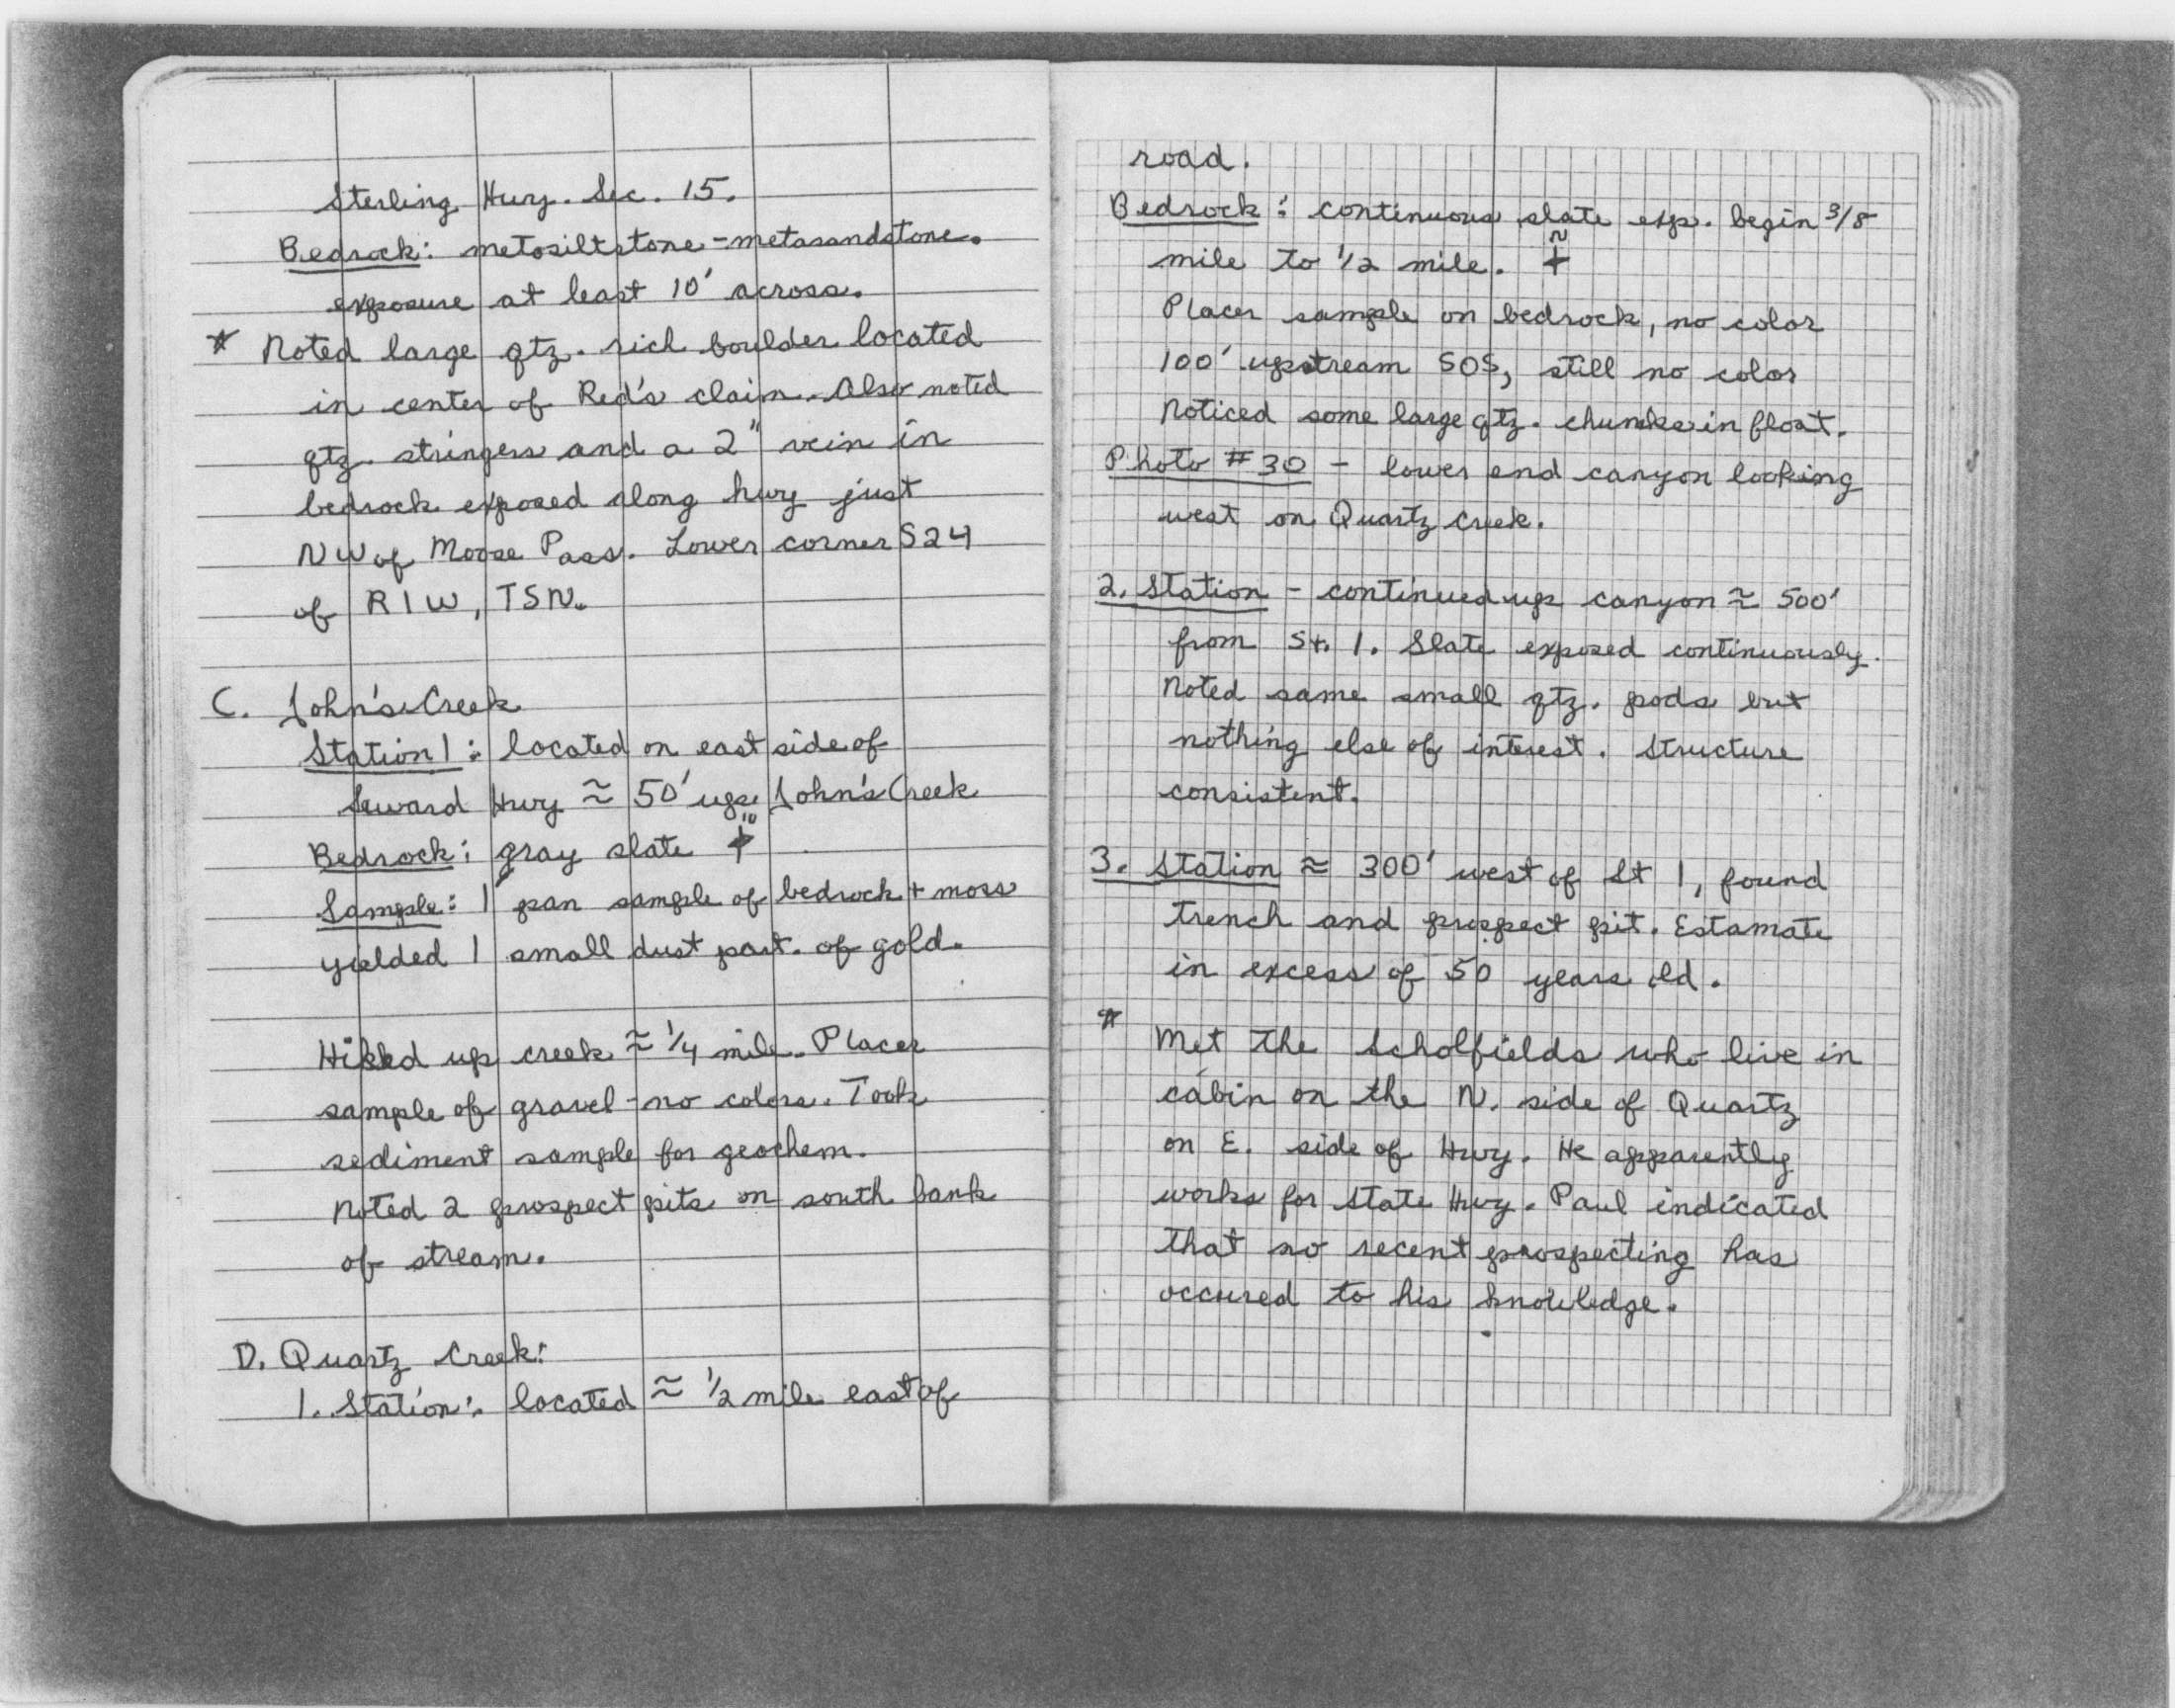 Sterling Hwy. Sec. 15.
Bedrock: metosiltstone-metasandstone.
exposure at least 10' across.
* Noted large qtz. rich boulder located
in center of Red's claim. Also noted
qtz. stringers and a 2" vein in
bedrock exposed along hwy just
NW of Moose Pass. Lower corner S24
of R1W, T5N.
C. John's Creek
Station 1: located on east side of
Seward Hwy ≈ 50' up John's Creek
Bedrock: gray slate
Sample: 1 pan sample of bedrock + moss
yielded 1 small dust part. of gold.
Hikked up creek ≈ 1/4 mile. Placer
sample of gravel - no colors. Took
sediment sample for geochem.
Noted 2 prospect pits on south bank
of stream.
D. Quartz Creek:
1. Station: located ≈ 1/2 mile east of
road.
Bedrock: continuous slate exp. begin 3/8
mile to 1/2 mile.
Placer sample on bedrock, no color
100' upstream SOS, still no color
Noticed some large qtz. chunks in float.
Photo #30 - lower end canyon looking
west on Quartz Creek.
2. Station - continued up canyon ≈ 500'
from St. 1. Slate exposed continuously.
Noted same small qtz. pods but
nothing else of interest. Structure
consistent.
3. Station ≈ 300' west of St 1, found
trench and prospect pit. Estamate
in excess of 50 years old.
* Met the Scholfields who live in
cabin on the N. side of Quartz
on E. side of Hwy. He apparently
works for State Hwy. Paul indicated
that no recent prospecting has
occured to his knowledge.